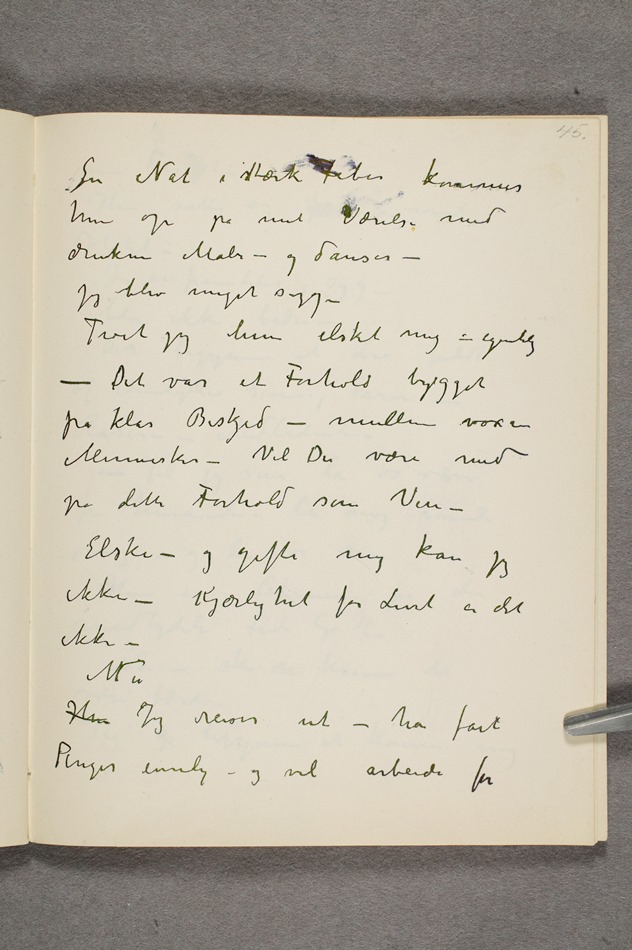 45.
En Nat i stærk Feber kommer
hun op på mit Værelse med
drukne Maler – og danser –
jeg blev meget syg –
Tror jeg hun elsket mig – egentlig
– Det var et Forhold bygget
på klar Beskjed – mellem voxne
Mennesker – Vil Du være med
på dette Forhold som Ven –
Elske – og gifte mig kan jeg
ikke – Kjærlighet for Livet er det
ikke –
Nu
Hun Jeg reiser ut – har fåt
Penger endelig – og vil arbeide for